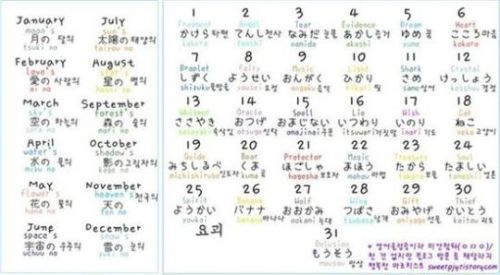 January July
moon's sun's
月の 달의 太陽の 태양의
tsuki no taiyou no
February August
love's star's
愛の 사랑의 星の 별의
ai no hoshi no
March September
sky's forest's
空の 하늘의 森の 숲의
sora no mori no
April October
water's shadow's
水の 물의 影の 그림자의
mizu no kage no
May November
flower's heaven's
花の 꽃의 天の 천국의
hana no ten no
June December
space's snow's
宇宙の 우주의 雪の 눈의
uchuu no yuki no
1 2 3 4 5 6
Fragment Angel Tear Evidence Dream Heart
かけら 파편 てんし 천사 なみだ 눈물 あかし 증거 ゆめ 꿈 こころ 마음
kakera tenshi namida akashi yume kokoro
7 8 9 10 11 12
Droplet Fairy Music Light Shark Crystal
しずく ようせい おんがく ひかり さめ けっしょう
shizuku 물방울 yousei 요정 ongaku 음악 hikari 빛 same 상어 kesshou
13 14 15 16 17 18
Whisper Oracle Spell Lie Wish Cat
ささやき おつげ おまじない いつわり いのり ねこ
sasayaki 속삭임 otsuge omajinai 주문 itsuwari 거짓말 inori 기도 neko 고양이
19 20 21 22 23 24
Guide Bear Protector Magic Treasure Soul
みちしるべ くま ほごしゃ まほう たから たましい
michishirube kuma 곰 hogosha 보호자 mahou 마법 takara 보물 tamashii 영혼
25 26 27 28 29 30
Spirit Banana Wolf Wing Gift Thief
ようかい バナナ おおかみ つばさ おみやげ かいとう
youkai banana 바나나 ookami 늑대 tsubasa 날개 omiyage 선물 kaitou 괴도
요괴
31
Delusion
もうそう
mousou 망상
sweetpjy.tistory.com